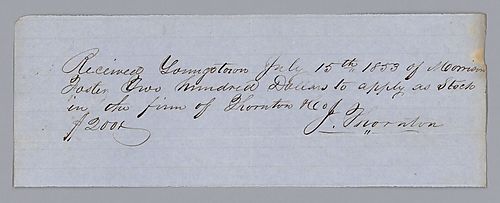 Received Youngstown July 15th 1853 of Morrison
Foster Two hundred Dollars to apply as Stock
in the firm of Thornton & Co
$200x J. Thornton